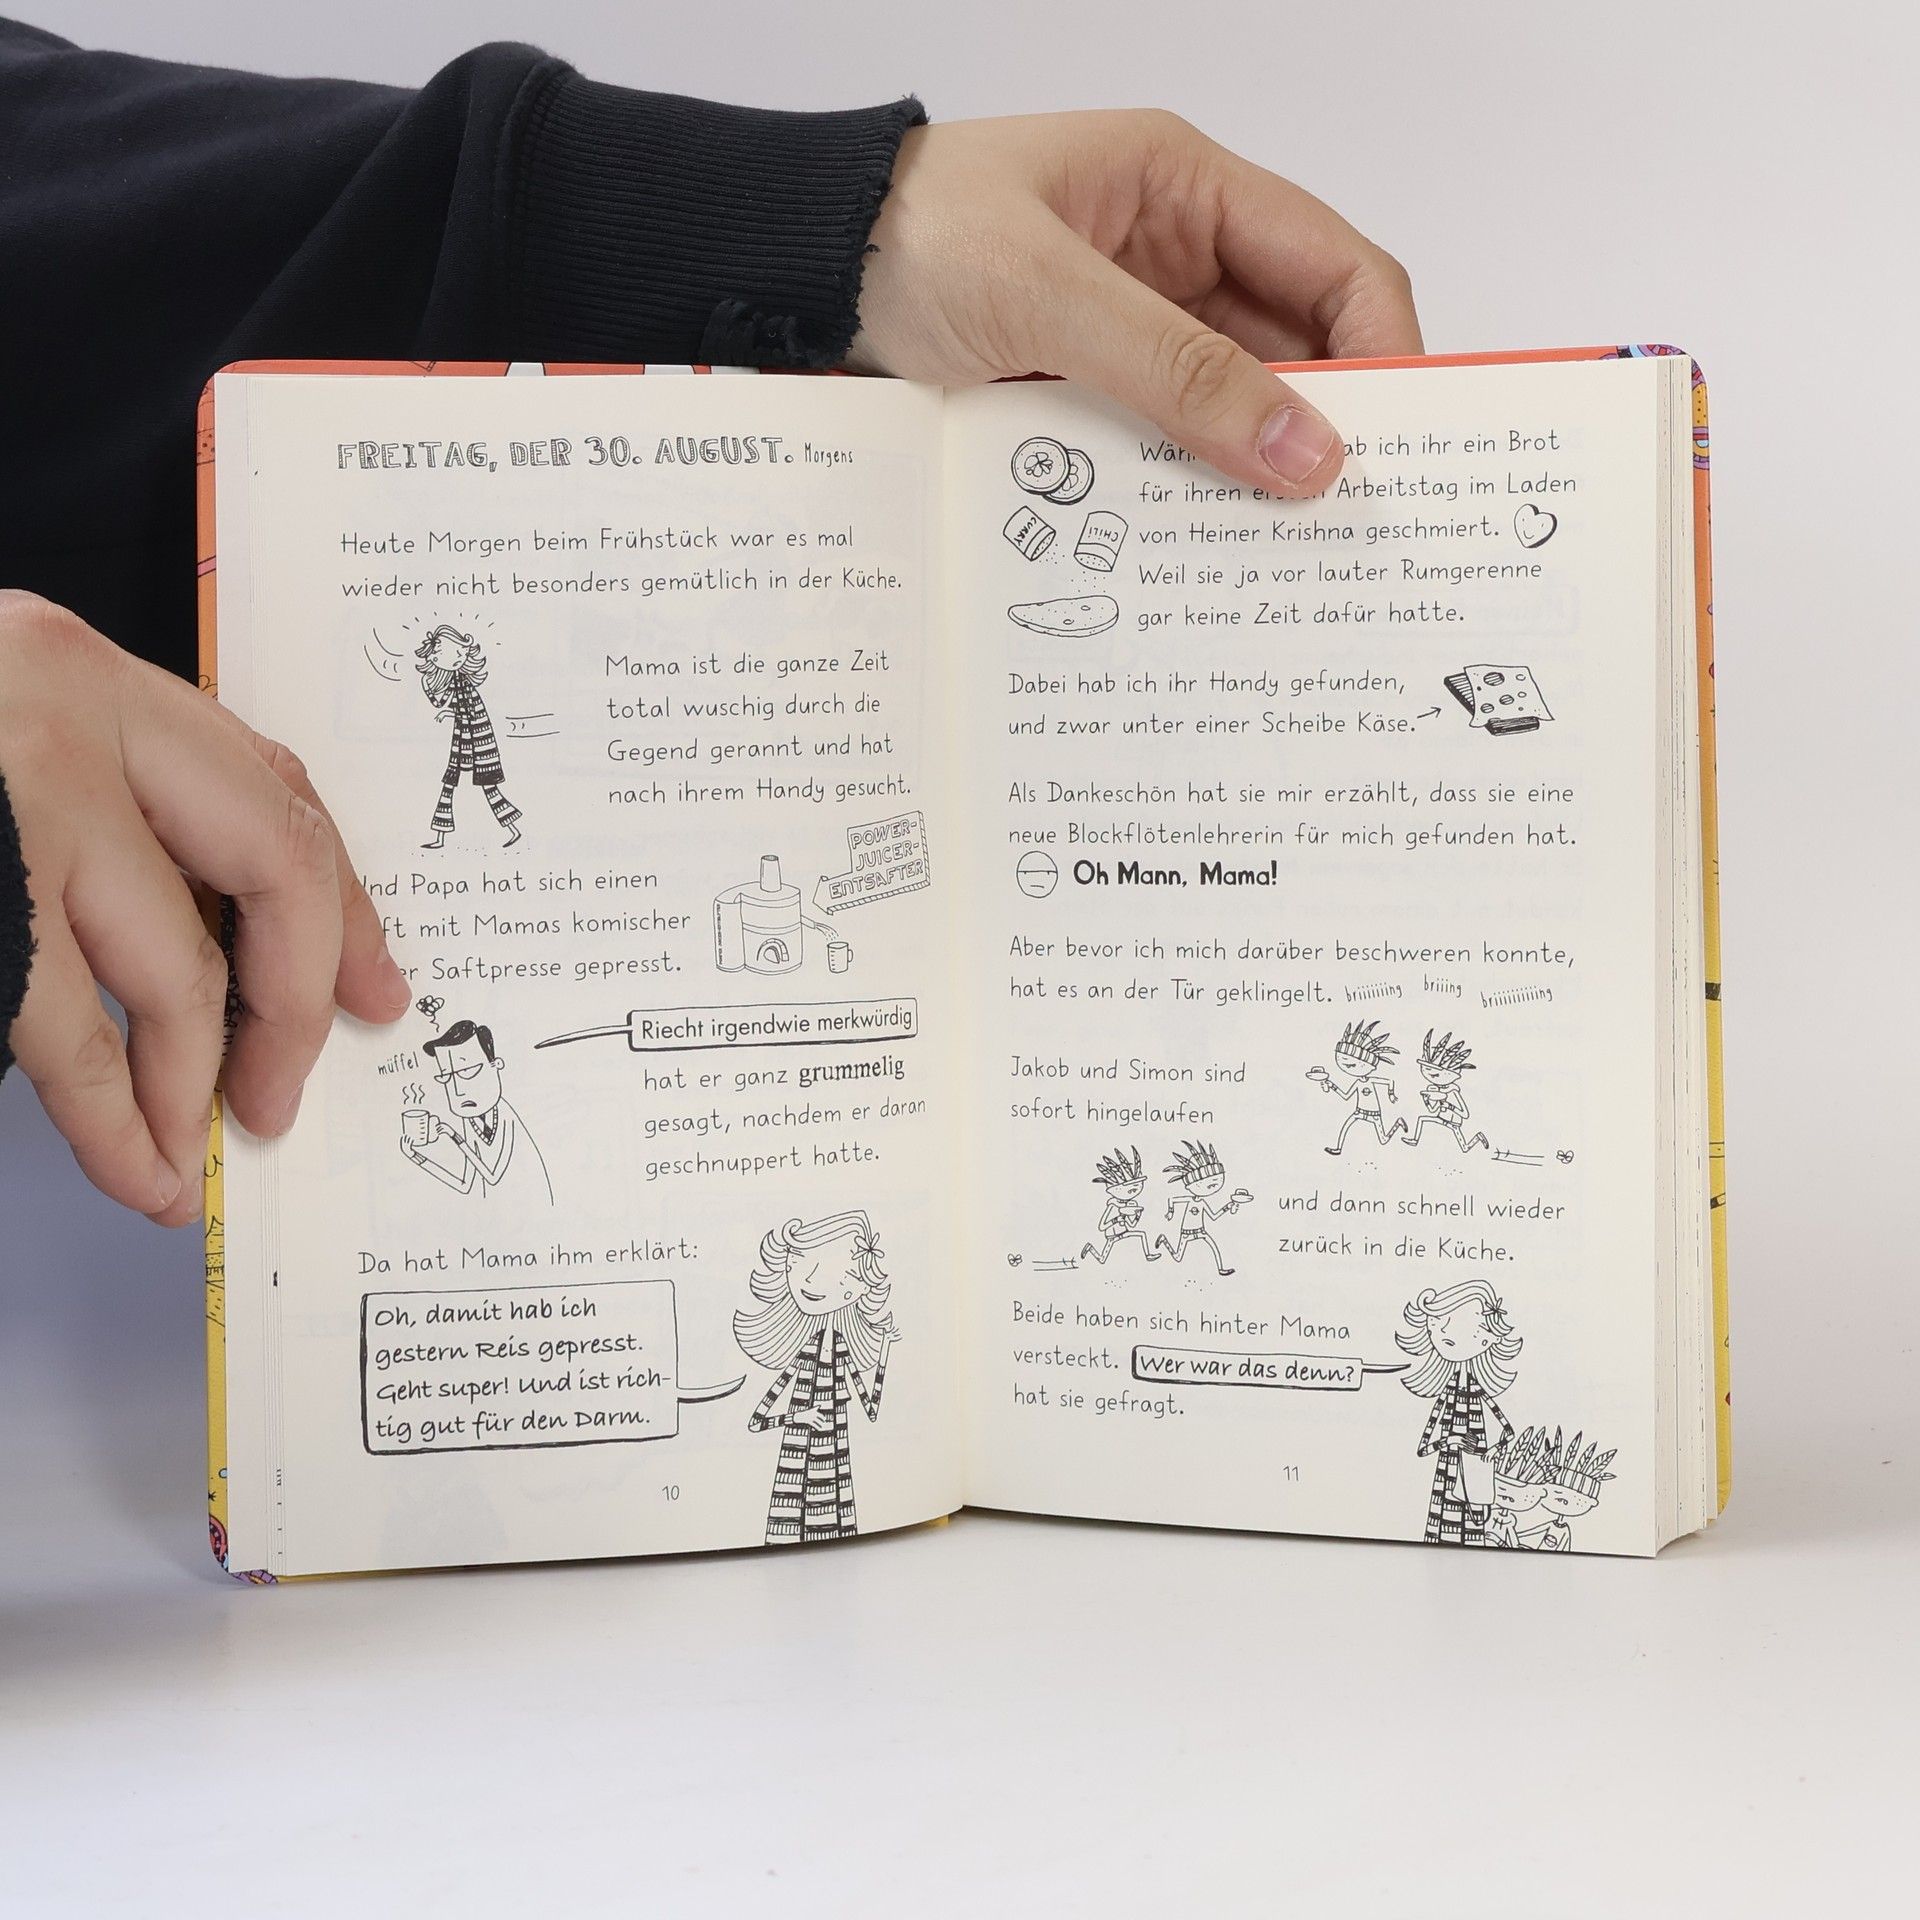 FREITAG, DER 30. AUGUST. Morgens
Heute Morgen beim Frühstück war es mal
wieder nicht besonders gemütlich in der Küche.
Mama ist die ganze Zeit
total wuschig durch die
Gegend gerannt und hat
nach ihrem Handy gesucht.
Papa hat sich einen
mit Mamas komischer
Saftpresse gepresst.
POWER-
JUICER-
ENTSAFTER
müffel
Riecht irgendwie merkwürdig
hat er ganz grummelig
gesagt, nachdem er daran
geschnuppert hatte.
Da hat Mama ihm erklärt:
Oh, damit hab ich
gestern Reis gepresst.
Geht super! Und ist rich-
tig gut für den Darm.
10
ich ihr ein Brot
für ihren Arbeitstag im Laden
von Heiner Krishna geschmiert.
Weil sie ja vor lauter Rumgerenne
gar keine Zeit dafür hatte.
CURRY
CHILI
Dabei hab ich ihr Handy gefunden,
und zwar unter einer Scheibe Käse.
Als Dankeschön hat sie mir erzählt, dass sie eine
neue Blockflötenlehrerin für mich gefunden hat.
Oh Mann, Mama!
Aber bevor ich mich darüber beschweren konnte,
hat es an der Tür geklingelt. briiiiiiing briiing briiiiiiiiiing
Jakob und Simon sind
sofort hingelaufen
und dann schnell wieder
zurück in die Küche.
Beide haben sich hinter Mama
versteckt. Wer war das denn?
hat sie gefragt.
11